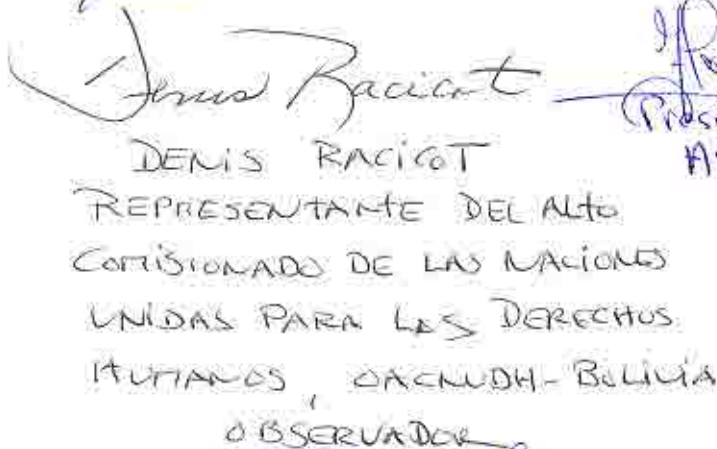 Denis Racicot
DENIS RACICOT
REPRESENTANTE DEL ALTO
COMISIONADO DE LAS NACIONES
UNIDAS PARA LOS DERECHOS
HUMANOS, OACNUDH-BOLIVIA
OBSERVADOR